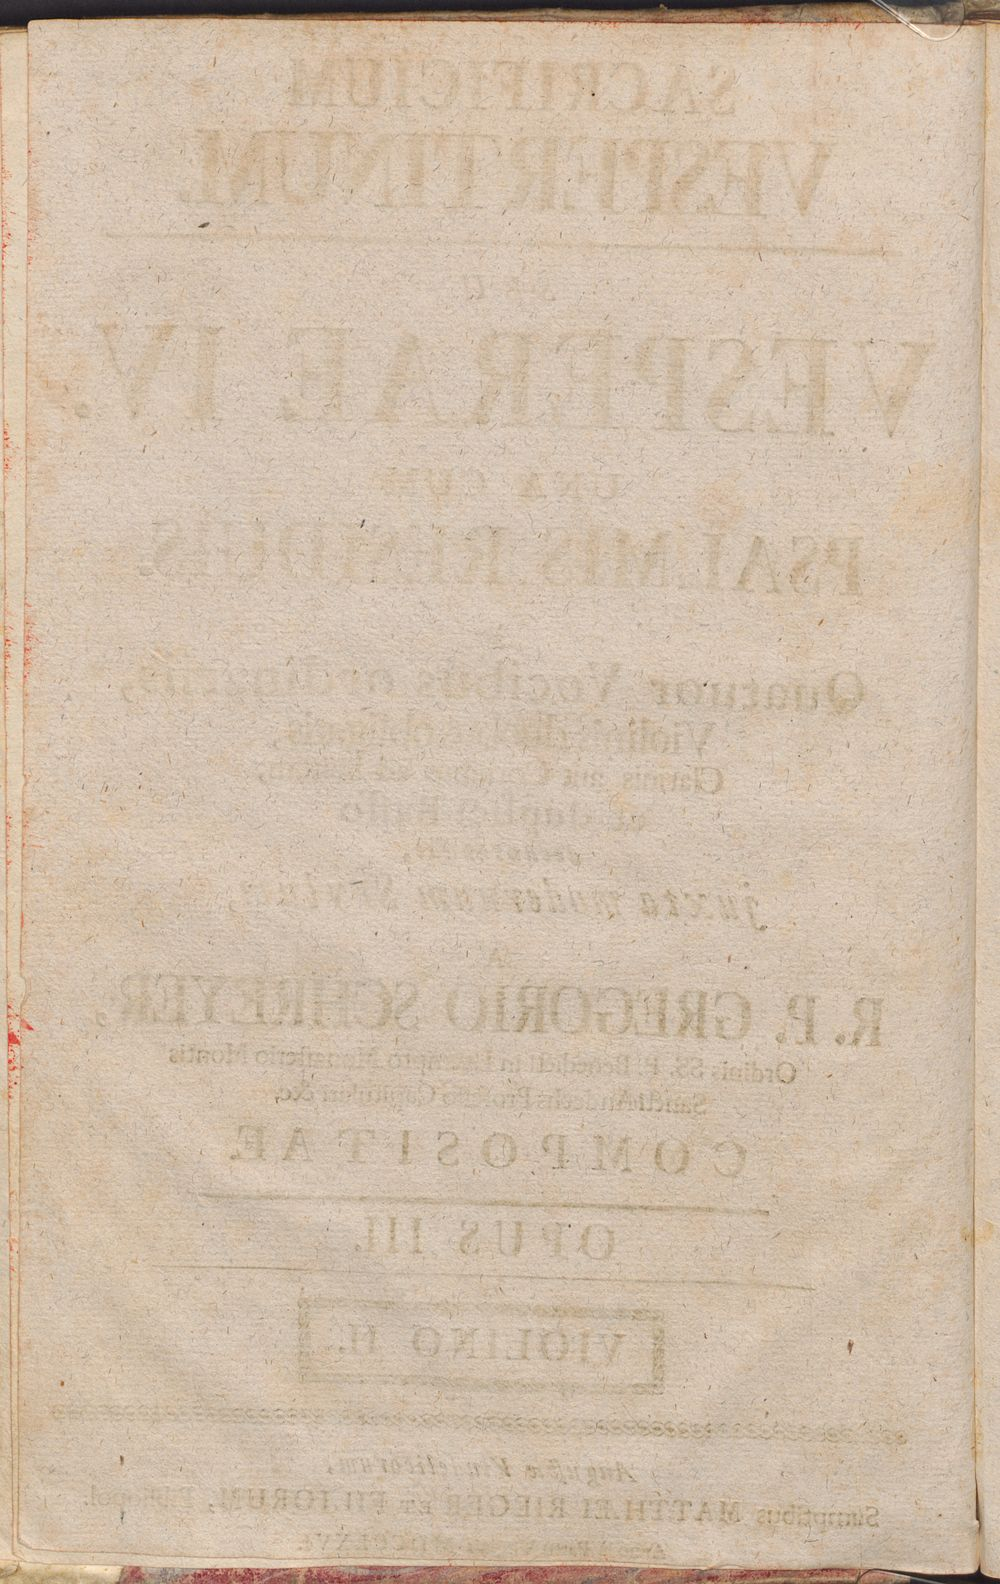 SACRIFICIUM
VESPERTINUM,
SEU
VESPERAE IV.
UNA CUM
PSALMIS RESIDUIS.
Quatuor Vocibus ordinariis,
Violinis
Clarinis aut Cornibus
et duplici Basso
juxta modernum Stylum,
A
R. P. GREGORIO SCHREYER,
Ordinis SS. P. Benedicti in Exempto Monasterio Montis
Sancti Andechs Professo Capitulari &c.
COMPOSITAE.
OPUS III.
VIOLINO II.
Augustæ Vindelicorum,
Sumptibus MATTHÆI RIEGER ET FILIORUM, Bibliopol.